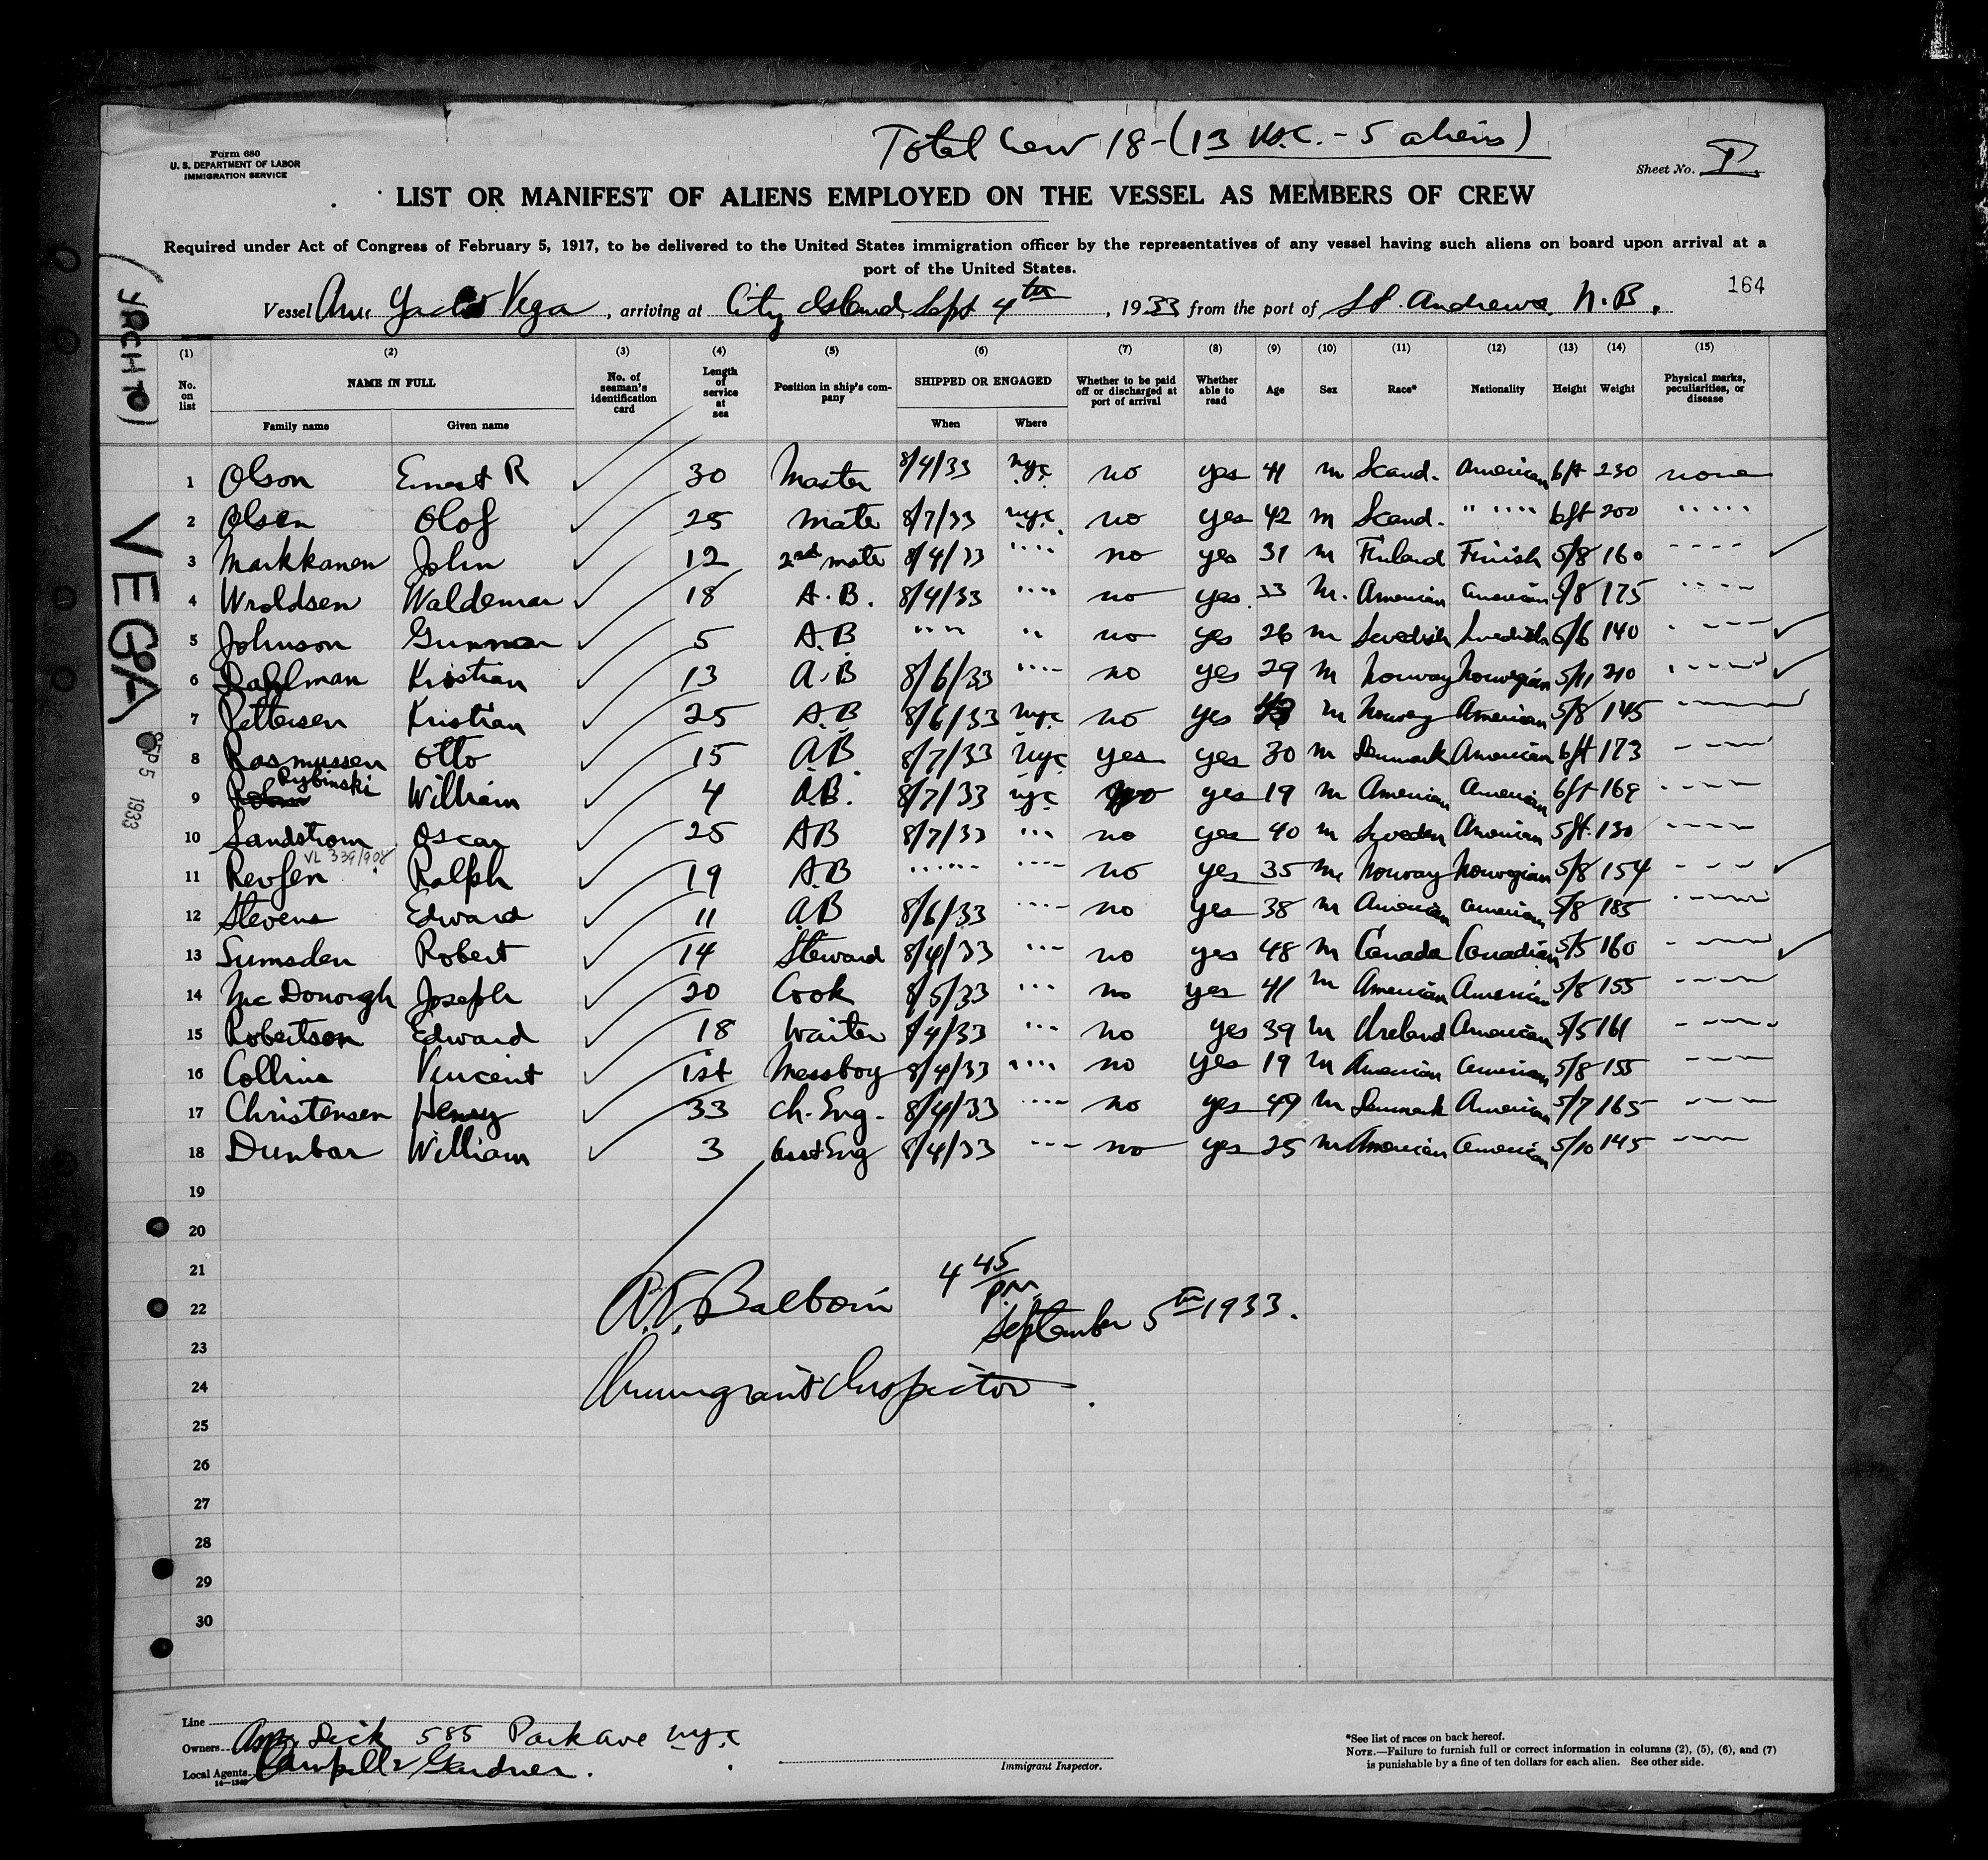 Total Crew 18 - (13 U.S.C. - 5 aliens)
Form 680
U. S. DEPARTMENT OF LABOR
IMMIGRATION SERVICE
Sheet No. I.
LIST OR MANIFEST OF ALIENS EMPLOYED ON THE VESSEL AS MEMBERS OF CREW
Required under Act of Congress of February 5, 1917, to be delivered to the United States immigration officer by the representatives of any vessel having such aliens on board upon arrival at a
port of the United States.
164
Vessel Am. Yacht Vega, arriving at City Island Sept 4th, 1933 from the port of St. Andrews N.B.
(YACHT)
VEGA
SEP 5 1933
(1) (2) (3) (4) (5) (6) (7) (8) (9) (10) (11) (12) (13) (14) (15)
No. on list NAME IN FULL No. of seaman's identification card Length of service at sea Position in ship's company SHIPPED OR ENGAGED Whether to be paid off or discharged at port of arrival Whether able to read Age Sex Race* Nationality Height Weight Physical marks, peculiarities, or disease
Family name Given name When Where
1 Olson Ernest R ✓ 30 Master 8/4/33 nyc no yes 41 m Scand. American 6ft 230 none
2 Olsen Olof ✓ 25 mate 8/7/33 nyc no yes 42 m Scand. " " 6ft 200 " "
3 Markkanen John ✓ 12 2nd mate 8/4/33 " " no yes 31 m Finland Finish 5/8 160 " " ✓
4 Wroldsen Waldemar ✓ 18 A.B. 8/4/33 " " no yes 33 M. American American 5/8 175 " "
5 Johnson Gunnar ✓ 5 A.B " " " no yes 26 m Swedish Swedish 5/6 140 " " ✓
6 Dahlman Kristian ✓ 13 A.B 8/6/33 " " no yes 29 m Norway Norwegian 5/11 210 " " ✓
7 Pettersen Kristian ✓ 25 A.B 8/6/33 nyc no yes m Norway American 5/8 145 " "
8 Rasmussen Otto ✓ 15 A.B 8/7/33 nyc yes yes 30 m Denmark American 6ft 173 " "
9 Rybinski William ✓ 4 A.B. 8/7/33 nyc no yes 19 m American American 6ft 169 " "
10 Sandstrom Oscar ✓ 25 AB 8/7/33 " " no yes 40 m Sweden American 5ft. 130 " "
VL 339/908
11 Revfen Ralph ✓ 19 A.B " " " " no yes 35 m Norway Norwegian 5/8 154 " " ✓
12 Stevens Edward ✓ 11 A.B 8/6/33 " " no yes 38 m American American 5/8 185 " "
13 Sumsden Robert ✓ 14 Steward 8/4/33 " " no yes 48 m Canada Canadian 5/5 160 " " ✓
14 McDonorgh Joseph ✓ 20 Cook 8/5/33 " " no yes 41 m American American 5/8 155 " "
15 Robertson Edward ✓ 18 Waiter 8/4/33 " " no yes 39 m Ireland American 5/5 161 " "
16 Collins Vincent ✓ 1st Messboy 8/4/33 " " no yes 19 m American American 5/8 155 " "
17 Christensen Henry ✓ 33 Ch. Eng. 8/4/33 " " no yes 49 m Denmark American 5/7 165 " "
18 Dunbar William ✓ 3 asst Eng 8/4/33 " " no yes 25 m American American 5/10 145 " "
19
20
21
22
23
24
25
26
27
28
29
30
4 45/PM
Balboin
September 5th 1933.
Immigrant Inspector
Line
Owners Dick 585 Park ave nyc
Local Agents Gardner.
14—1240
Immigrant Inspector.
*See list of races on back hereof.
NOTE.—Failure to furnish full or correct information in columns (2), (5), (6), and (7)
is punishable by a fine of ten dollars for each alien. See other side.